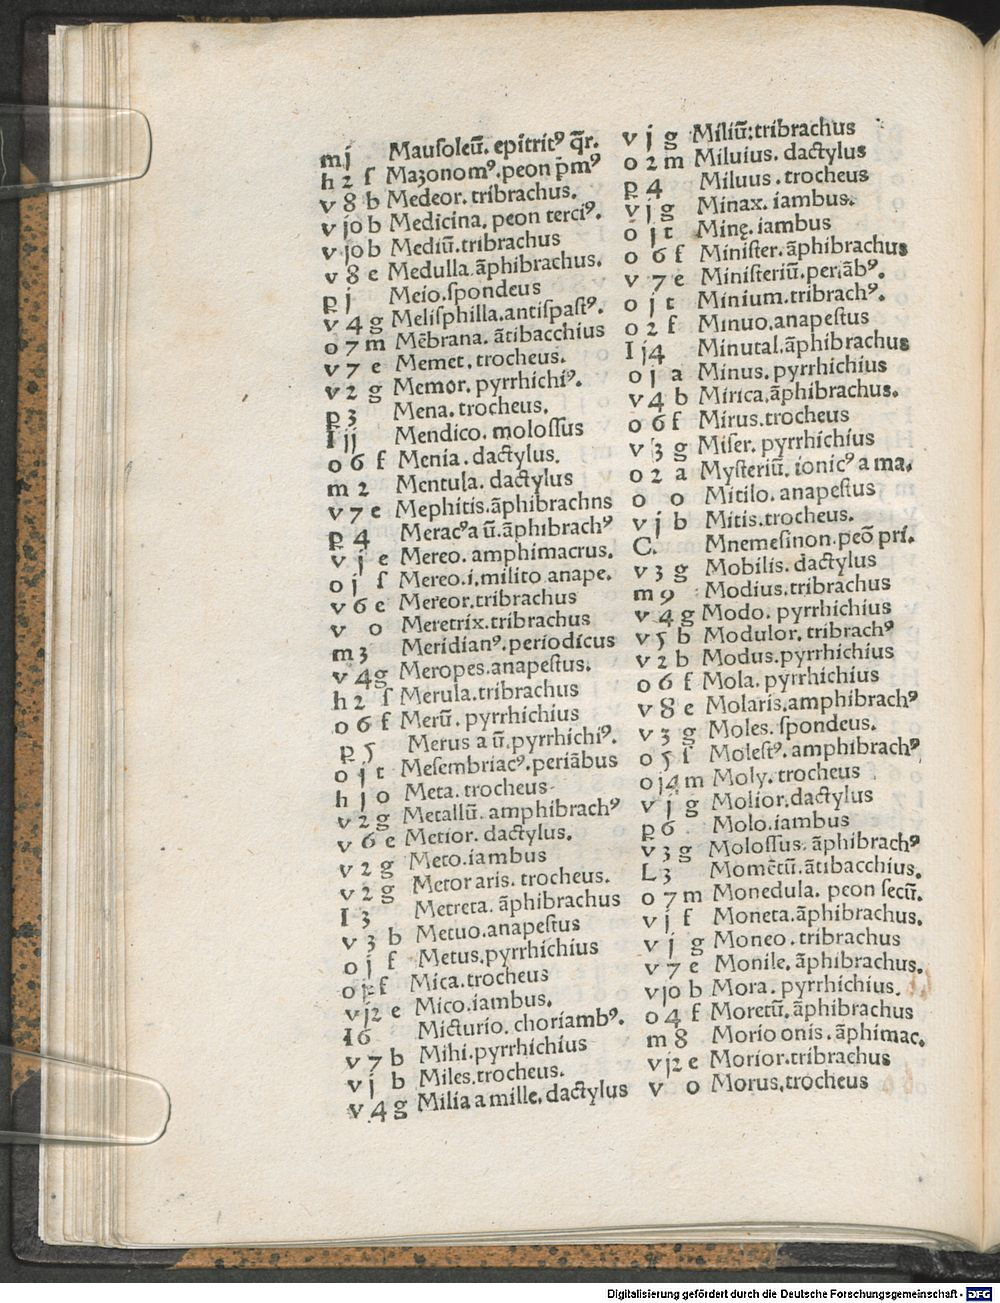 mj Mauſoleū. epitritꝰ q̄r.
h 2 ſ Mazonomꝰ. peon p̄mꝰ
v 8 b Medeor. tribrachus.
v jo b Medicina. peon terciꝰ.
v jo b Mediū. tribrachus
v 8 e Medulla. āphibrachus.
p j Meio. ſpondeus
v 4 g Meliſphilla. antiſpaſtꝰ.
o 7 m Mēbrana. ātibacchius
v 7 e Memet. trocheus.
v 2 g Memor. pyrrhichiꝰ.
p 3 Mena. trocheus.
I jj Mendico. moloſſus
o 6 f Menia. dactylus.
m 2 Mentula. dactylus
v 7 e Mephitis. āphibrachns
p 4 Meracꝰ a ū. āphibrachꝰ
v j e Mereo. amphimacrus.
o j ſ Mereo. i. milito anape.
v 6 e Mereor. tribrachus
v o Meretrix. tribrachus
m 3 Meridianꝰ. periodicus
v 4 g Meropes. anapeſtus.
h 2 ſ Merula. tribrachus
o 6 f Merū. pyrrhichius
p 5 Merus a ū. pyrrhichiꝰ.
o j t Meſembriacꝰ. periābus
h j o Meta. trocheus
v 2 g Metallū. amphibrachꝰ
v 6 e Metior. dactylus.
v 2 g Meto. iambus
v 2 g Metor aris. trocheus.
I 3 Metreta. āphibrachus
v 3 b Metuo. anapeſtus
o j f Metus. pyrrhichius
o j f Mica. trocheus
v j2 e Mico. iambus.
I 6 Micturio. choriambꝰ.
v 7 b Mihi. pyrrhichius
v j b Miles. trocheus.
v 4 g Milia a mille. dactylus
v j g Miliū: tribrachus
o 2 m Miluius. dactylus
p 4 Miluus. trocheus
v j g Minax. iambus.
o j t Minę. iambus
o 6 f Miniſter. āphibrachus
v 7 e Miniſteriū. periābꝰ.
o j t Minium. tribrachꝰ.
o 2 f Minuo. anapeſtus
I j4 Minutal. āphibrachus
o j a Minus. pyrrhichius
v 4 b Mirica. āphibrachus.
o 6 f Mirus. trocheus
v 3 g Miſer. pyrrhichius
o 2 a Myſteriū. ionicꝰ a ma.
o o Mitilo. anapeſtus
v j b Mitis. trocheus.
C. Mnemeſinon. peō pri.
v 3 g Mobilis. dactylus
m 9 Modius. tribrachus
v 4 g Modo. pyrrhichius
v 5 b Modulor. tribrachꝰ
v 2 b Modus. pyrrhichius
o 6 f Mola. pyrrhichius
v 8 e Molaris. amphibrachꝰ
v 3 g Moles. ſpondeus.
o 5 f Moleſtꝰ. amphibrachꝰ
o j4 m Moly. trocheus
v j g Molior. dactylus
p 6 Molo. iambus
v 3 g Moloſſus. āphibrachꝰ
L 3 Momētū. ātibacchius.
o 7 m Monedula. peon ſecū.
v j f Moneta. āphibrachus.
v j g Moneo. tribrachus
v 7 e Monile. āphibrachus.
v jo b Mora. pyrrhichius.
o 4 f Moretū. āphibrachus
m 8 Morio onis. āphimac.
v j2 e Morior. tribrachus
v o Morus. trocheus
Digitalisierung gefördert durch die Deutsche Forschungsgemeinschaft - DFG